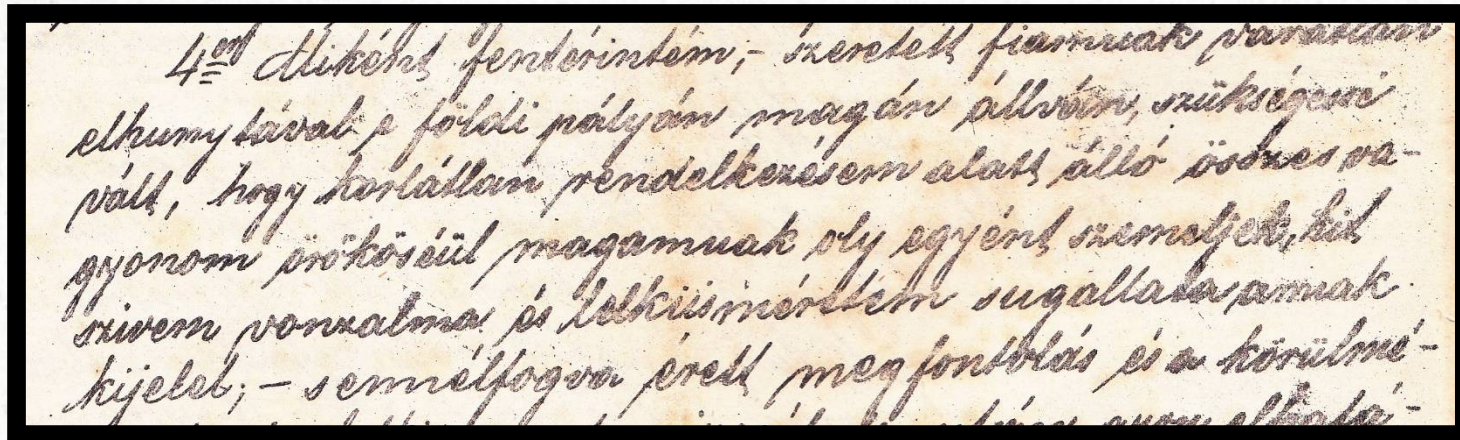 4er Miként fentérintém,- szeretett fiamnak váratlan
elhunytával e földi pályán magán állván, szükségessé
vált, hogy korlátlan rendelkezésem alatt álló összes va-
gyonom örököséül magamnak oly egyént szemeljek, kit
szivem vonzalma és lelkiismeretem sugallata annak
kijelel; - s ennélfogva érett megfontolás és a körülmé-
elhatá-